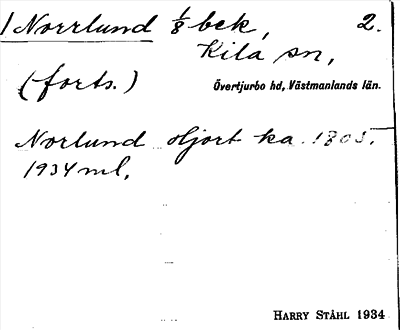 1 Norrlund 1/8 bek, 2.
Kila sn,
(forts.) Övertjurbo hd, Västmanlands län.
Norlund Hjort ka. 1805.
1934 ml,
HARRY STÅHL 1934